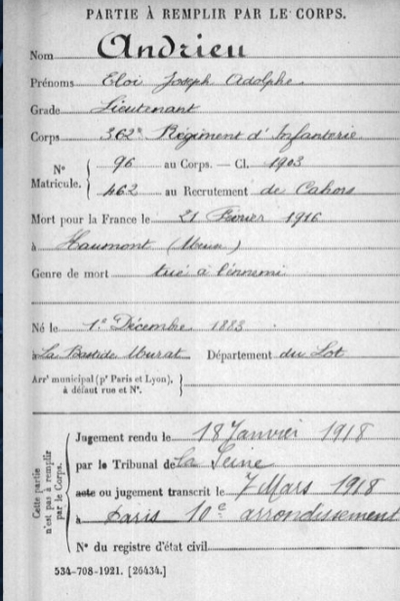 PARTIE À REMPLIR PAR LE CORPS.
Nom Andrieu
Prénoms Eloi Joseph Adolphe.
Grade Lieutenant
Corps 362e Régiment d'Infanterie
N° Matricule. { 96 au Corps. — Cl. 1903
462 au Recrutement de Cahors
Mort pour la France le 21 Février 1916
à Haumont (Meuse)
Genre de mort tué à l'ennemi
Né le 1er Décembre 1883
à La Bastide Murat Département du Lot
Arrt municipal (pr Paris et Lyon), à défaut rue et N°. }
Cette partie n'est pas à remplir par le Corps.
Jugement rendu le 18 Janvier 1918
par le Tribunal de la Seine
acte ou jugement transcrit le 7 Mars 1918
à Paris 10e arrondissement
N° du registre d'état civil
534-708-1921. [26434.]